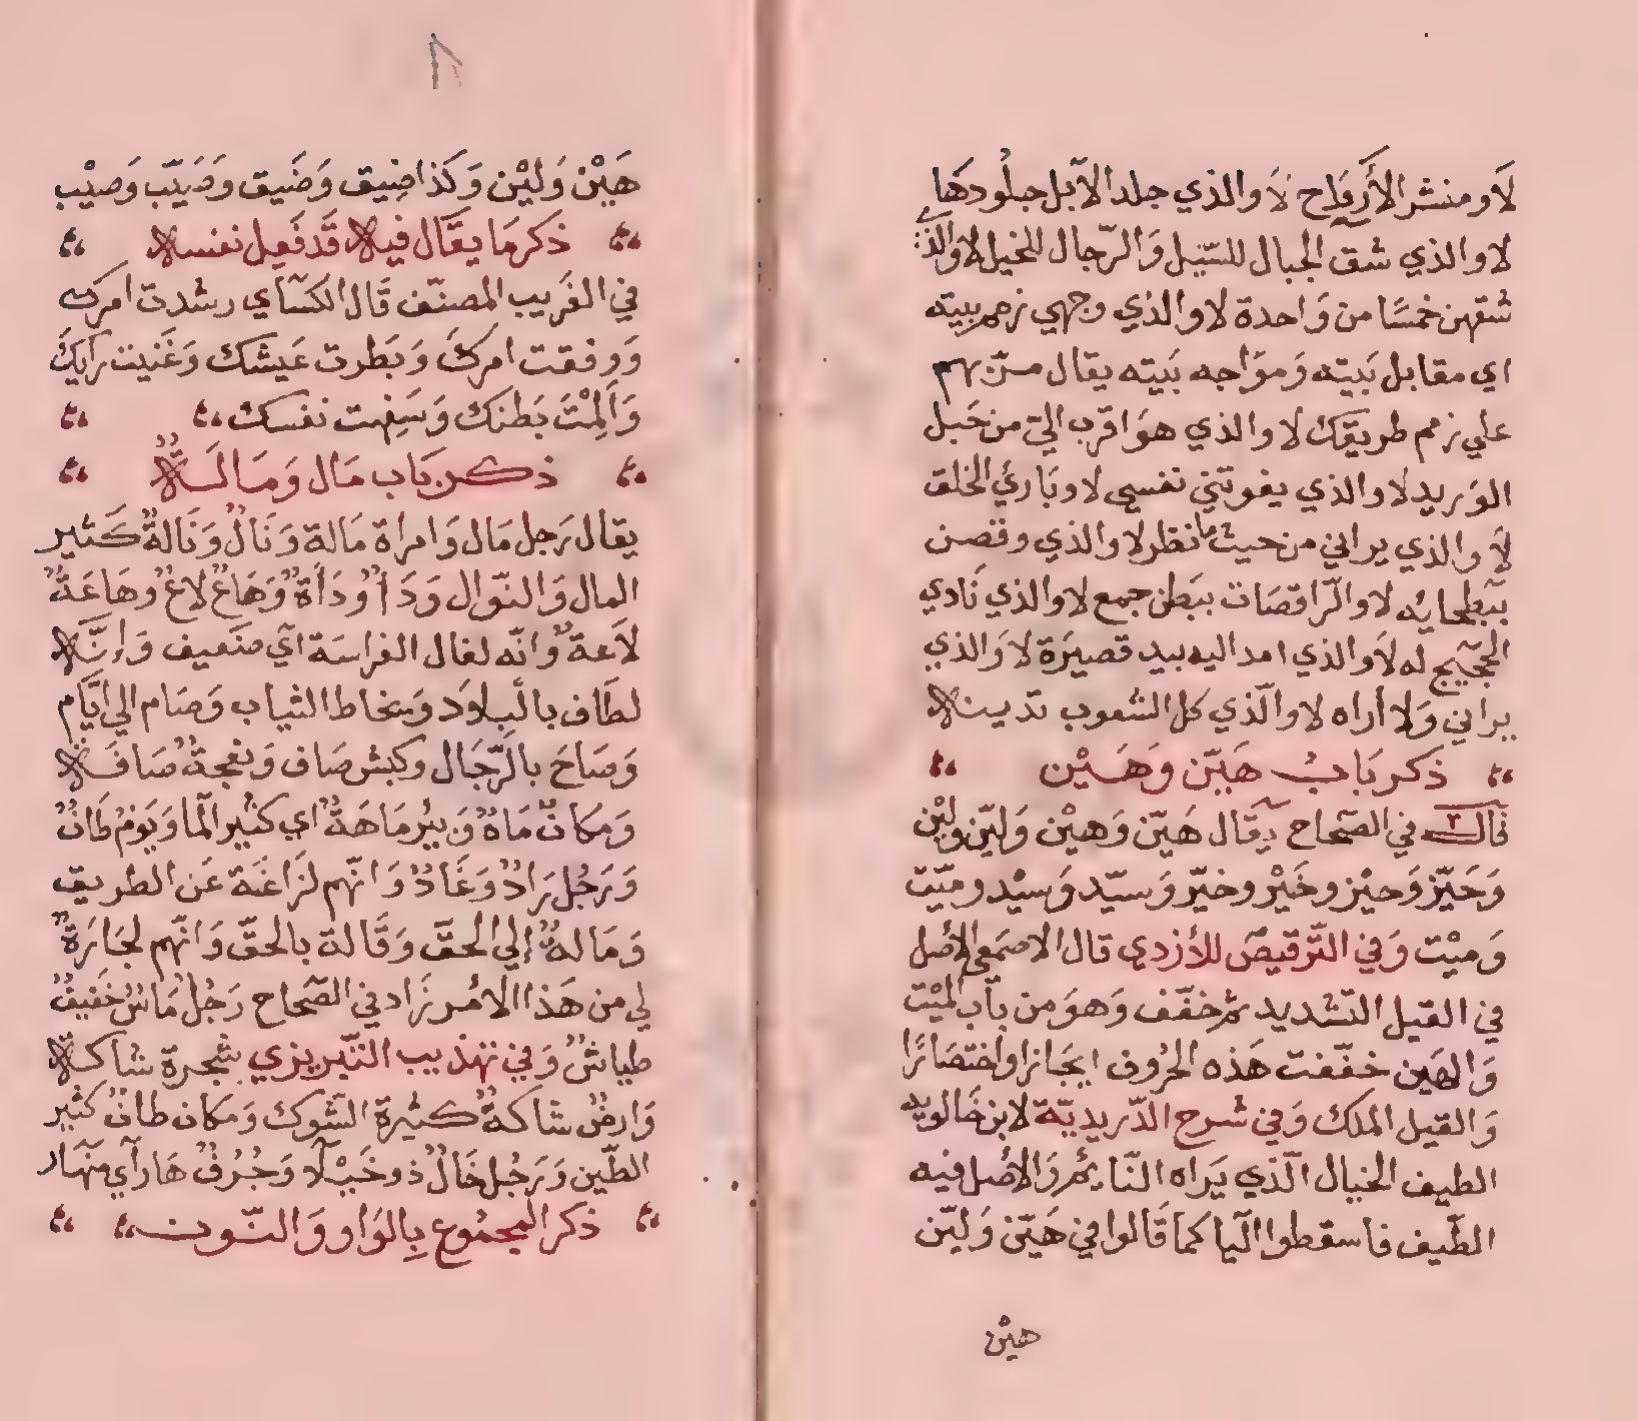 لَا ومنشر الأَروَاح لَا والذي جلد الآبل جلُودهَا
لا والذي شق الجبال للسّيل وَالرّجال للخيل لا والذي
شقهن خمسًا من وَاحدة لا والذي وجهي زمم بيته
اي مقابل بَيته وَموَاجه بَيته يقال مرّ بهم
علي زمم طريقك لا والذي هوَ اقرب اليّ من حَبل
الوَريد لا والذي يقوتني نفسي لا وبَارئ الخلق
لَا والذي يراني من حيث ما نظر لا والذي رقصن
ببَطحايه لا والرّاقصَات ببَطن جمع لا والذي نَادي
الحجيج له لَا والذي امد اليه بيد قصيرَة لا وَالذي
يراني وَلا أراه لا والّذي كل الشعوب تدينه
ذكر بَاب هَيّن وَهَيْن
قال في الصّحاح يقَال هَيّن وَهيْن وَليّن وليْن
وَحَيّز وَحيْز وخَيْر وخيّر وَسيّد وَسيْد وميّت
وَميْت وَفي التّرقيص للأزدي قال الاصمعي الأصل
في القيل التّشديد ثم خفّف وَهوَ من بَاب الميْت
وَالهَين خفّفت هَذه الحرُوف ايجَازا واختصَارًا
وَالقيل الملك وَفي شرح الدّريديّة لابن خَالويه
الطيف الخيال الّذي يَراه النّايم وَالأصل فيه
الطّيف فاسقطوا اليا كمَا قَالوا في هَيّن وَليّن
هيْن
٨
هَيْن وَليْن وَكَذا ضيق وَضَيق وَصَيّب وَصيْب
ذكر مَا يقَال فيه قَد فَعِل نفسه
في الغَريب المصنّف قَال الكسَاي رشدت امرك
وَوفقت امركَ وَبَطرت عَيشك وَغَبنت رَايكَ
وَاَلِمْتَ بَطنك وَسَفِهت نفسك
ذكر بَاب مَال وَمَالَة
يقال رَجل مَال وَامراة مَالة وَنَالٌ وَنَالةٌ كَثير
المال وَالنّوال وَدَاءٌ وَدَاءةٌ وَهَاعٌ لاعٌ وهَاعَةٌ
لَاعةٌ وَانّه لفال الفراسَة اَي ضَعيف وَإنّه
لطَاف بالبلاد وَخاط الثياب وَصَام الي ايَّام
وَصَاحَ بالرّجَال وكبش صَاف وَنعجةٌ صَافَة
وَمكانٌ مَاهٌ وَبيْر مَاهَةٌ اي كثير المَا وَيَومٌ طَانٌ
وَرَجُل رَادٌ وَغَادٌ وَانّهم لزَاغَة عَن الطريق
وَمَالةٌ إلي الحقّ وَقَالة بالحقّ وَانّهم لجَارَةٌ
لي من هَذا الأمر زَاد في الصّحاح رَجُلٌ مَاسٌ خَفيفٌ
طياشٌ وَفي تهذيب التّبريزي شجرة شاكة
وَارضٌ شاكةٌ كثيرة الشّوك وَمكان طانٌ كثير
الطّين وَرَجُل خَالٌ ذو خيَلا وَجُرُفٌ هَار اَي منهَار
ذكر المجمُوع بِالوَاو وَالنّون